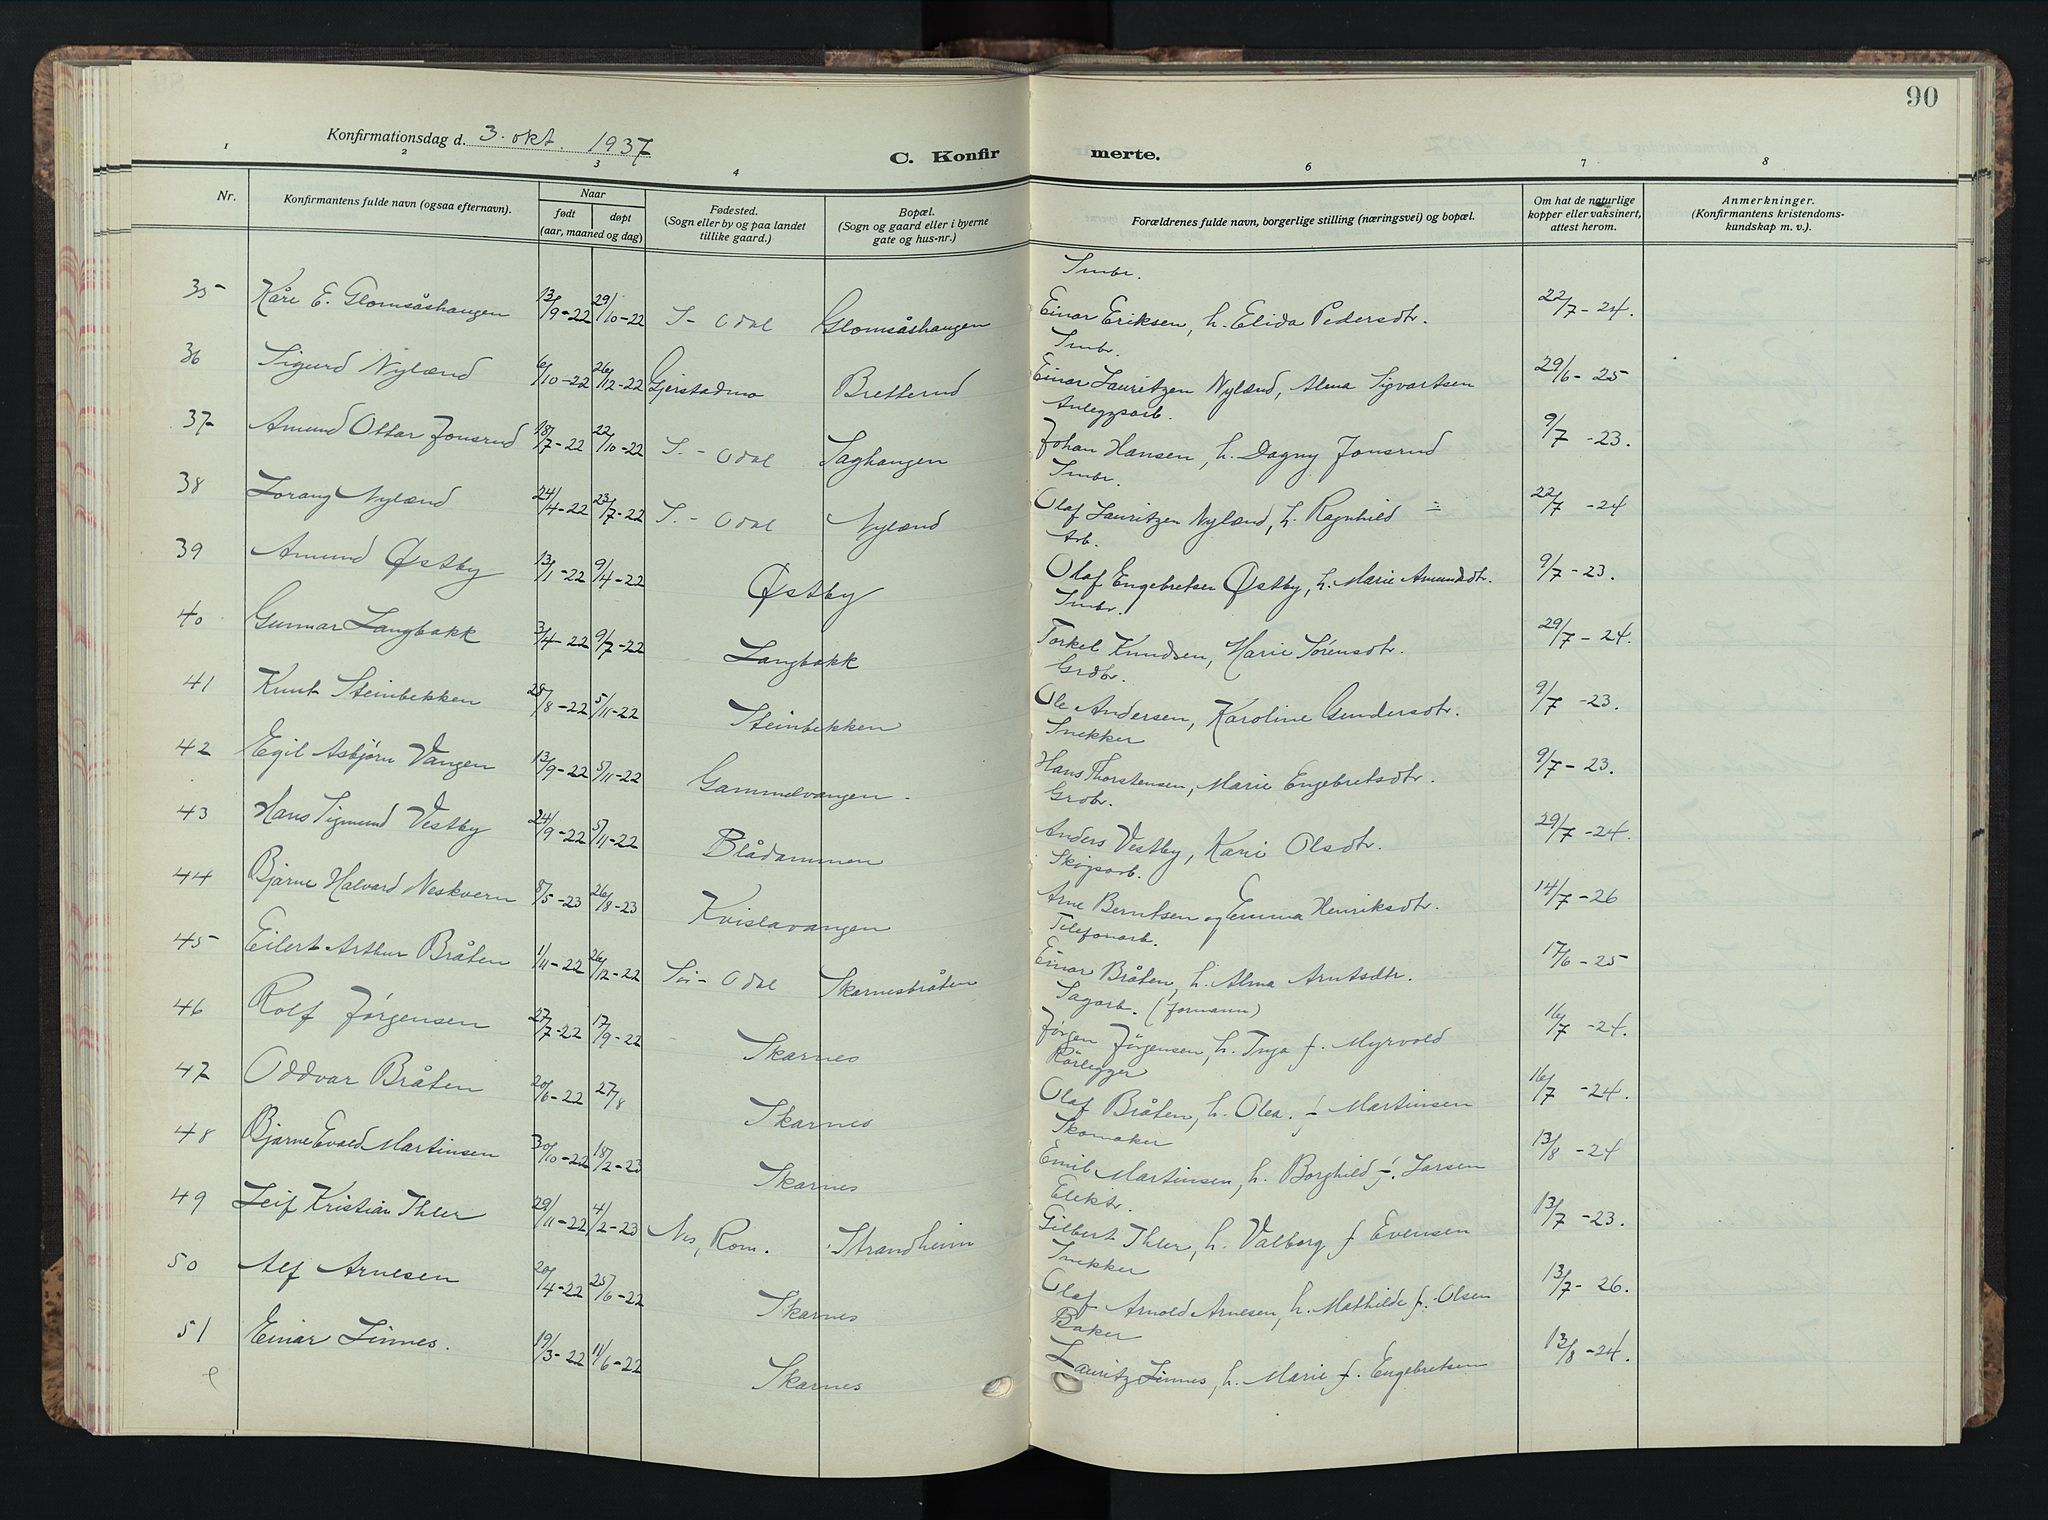 90
Konfirmationsdag d. 3. okt. 1937
C. Konfirmerte.
1 2 3 4 6 7 8
Nr. Konfirmantens fulde navn (ogsaa efternavn). Naar født døpt (aar, maaned og dag) Fødested. (Sogn eller by og paa landet tillike gaard.) Bopæl. (Sogn og gaard eller i byerne gate og hus-nr.) Forældrenes fulde navn, borgerlige stilling (næringsvei) og bopæl. Om hat de naturlige kopper eller vaksinert, attest herom. Anmerkninger. (Konfirmantens kristendomskundskap m. v.).
Smbr.
35 Kåre E. Glomsåshaugen 13/9-22 29/10-22 S-Odal Glomsåshaugen Einar Eriksen, h. Elida Pedersdtr. 22/7-24.
Smbr.
36 Sigurd Nylænd 6/10-22 26/12-22 Gjerstadmo Bretterud Einar Lauritzen Nylænd, Alma Sigvartsen 29/6-25
Anleggsarb.
37 Amund Ottar Jonsrud 18/7-22 22/10-22 S.-Odal Saghaugen Johan Hansen, h. Dagny Jonsrud 9/7-23.
Smbr.
38 Lorang Nylænd 24/4-22 23/7-22 S.-Odal Nylænd Olaf Lauritzen Nylænd, h. Ragnhild 22/7-24
Arb.
39 Amund Østby 13/1-22 9/4-22 Østby Olaf Engebretsen Østby, h. Marie Amundsdtr. 9/7-23.
Smbr.
40 Gunnar Langbakk 3/4-22 9/7-22 Langbakk Torkel Knudsen, Marie Sørensdtr. 29/7-24.
Grdbr.
41 Knut Steinbekken 28/8-22 5/11-22 Steinbekken Ole Andersen, Karoline Gundersdtr. 9/7-23.
Snekker
42 Egil Asbjørn Vangen 13/9-22 5/11-22 Gammelvangen. Hans Thorstensen, Marie Engebretsdtr. 9/7-23.
Grdbr.
43 Hans Sigmund Vestby 24/9-22 5/11-22 Blådammen Anders Vestby, Kari Olsdtr. 29/7-24.
Skogsarb.
44 Bjarne Halvard Neskvern 8/5-23 26/8-23 Kvislavangen Arne Berntsen og Emma Henriksdtr. 14/7-26
Telefonarb.
45 Eilert Arthur Bråten 1/11-22 26/12-22 Sør-Odal Skarnesbråten Einar Bråten, h. Alma Arntsdtr. 17/6-25
Sagarb. (formann)
46 Rolf Jørgensen 27/7-22 17/9-22 Skarnes Jørgen Jørgensen, h. Inga f. Myrvold 16/7-24.
Rørlegger
47 Oddvar Bråten 20/6-22 27/8 Skarnes Olaf Bråten, h. Olea f. Martinsen 16/7-24.
Skomaker
48 Bjarne Evald Martinsen 30/10-22 18/2-23 Skarnes Emil Martinsen, h. Borghild f. Larsen 13/8-24
Elektr.
49 Leif Kristian Ihler 29/11-22 4/2-23 Nes, Rom. Strandheim Gilbert Ihler, h. Valborg f Evensen 13/7-23.
Snekker
50 Alf Arnesen 20/4-22 25/6-22 Skarnes Olaf Arnold Arnesen, h. Mathilde f. Olsen 13/7-26.
Baker
51 Einar Linnes. 19/3-22 11/6-22 Skarnes Lauritz Linnes, h. Marie f. Engebretsen 13/8-24.